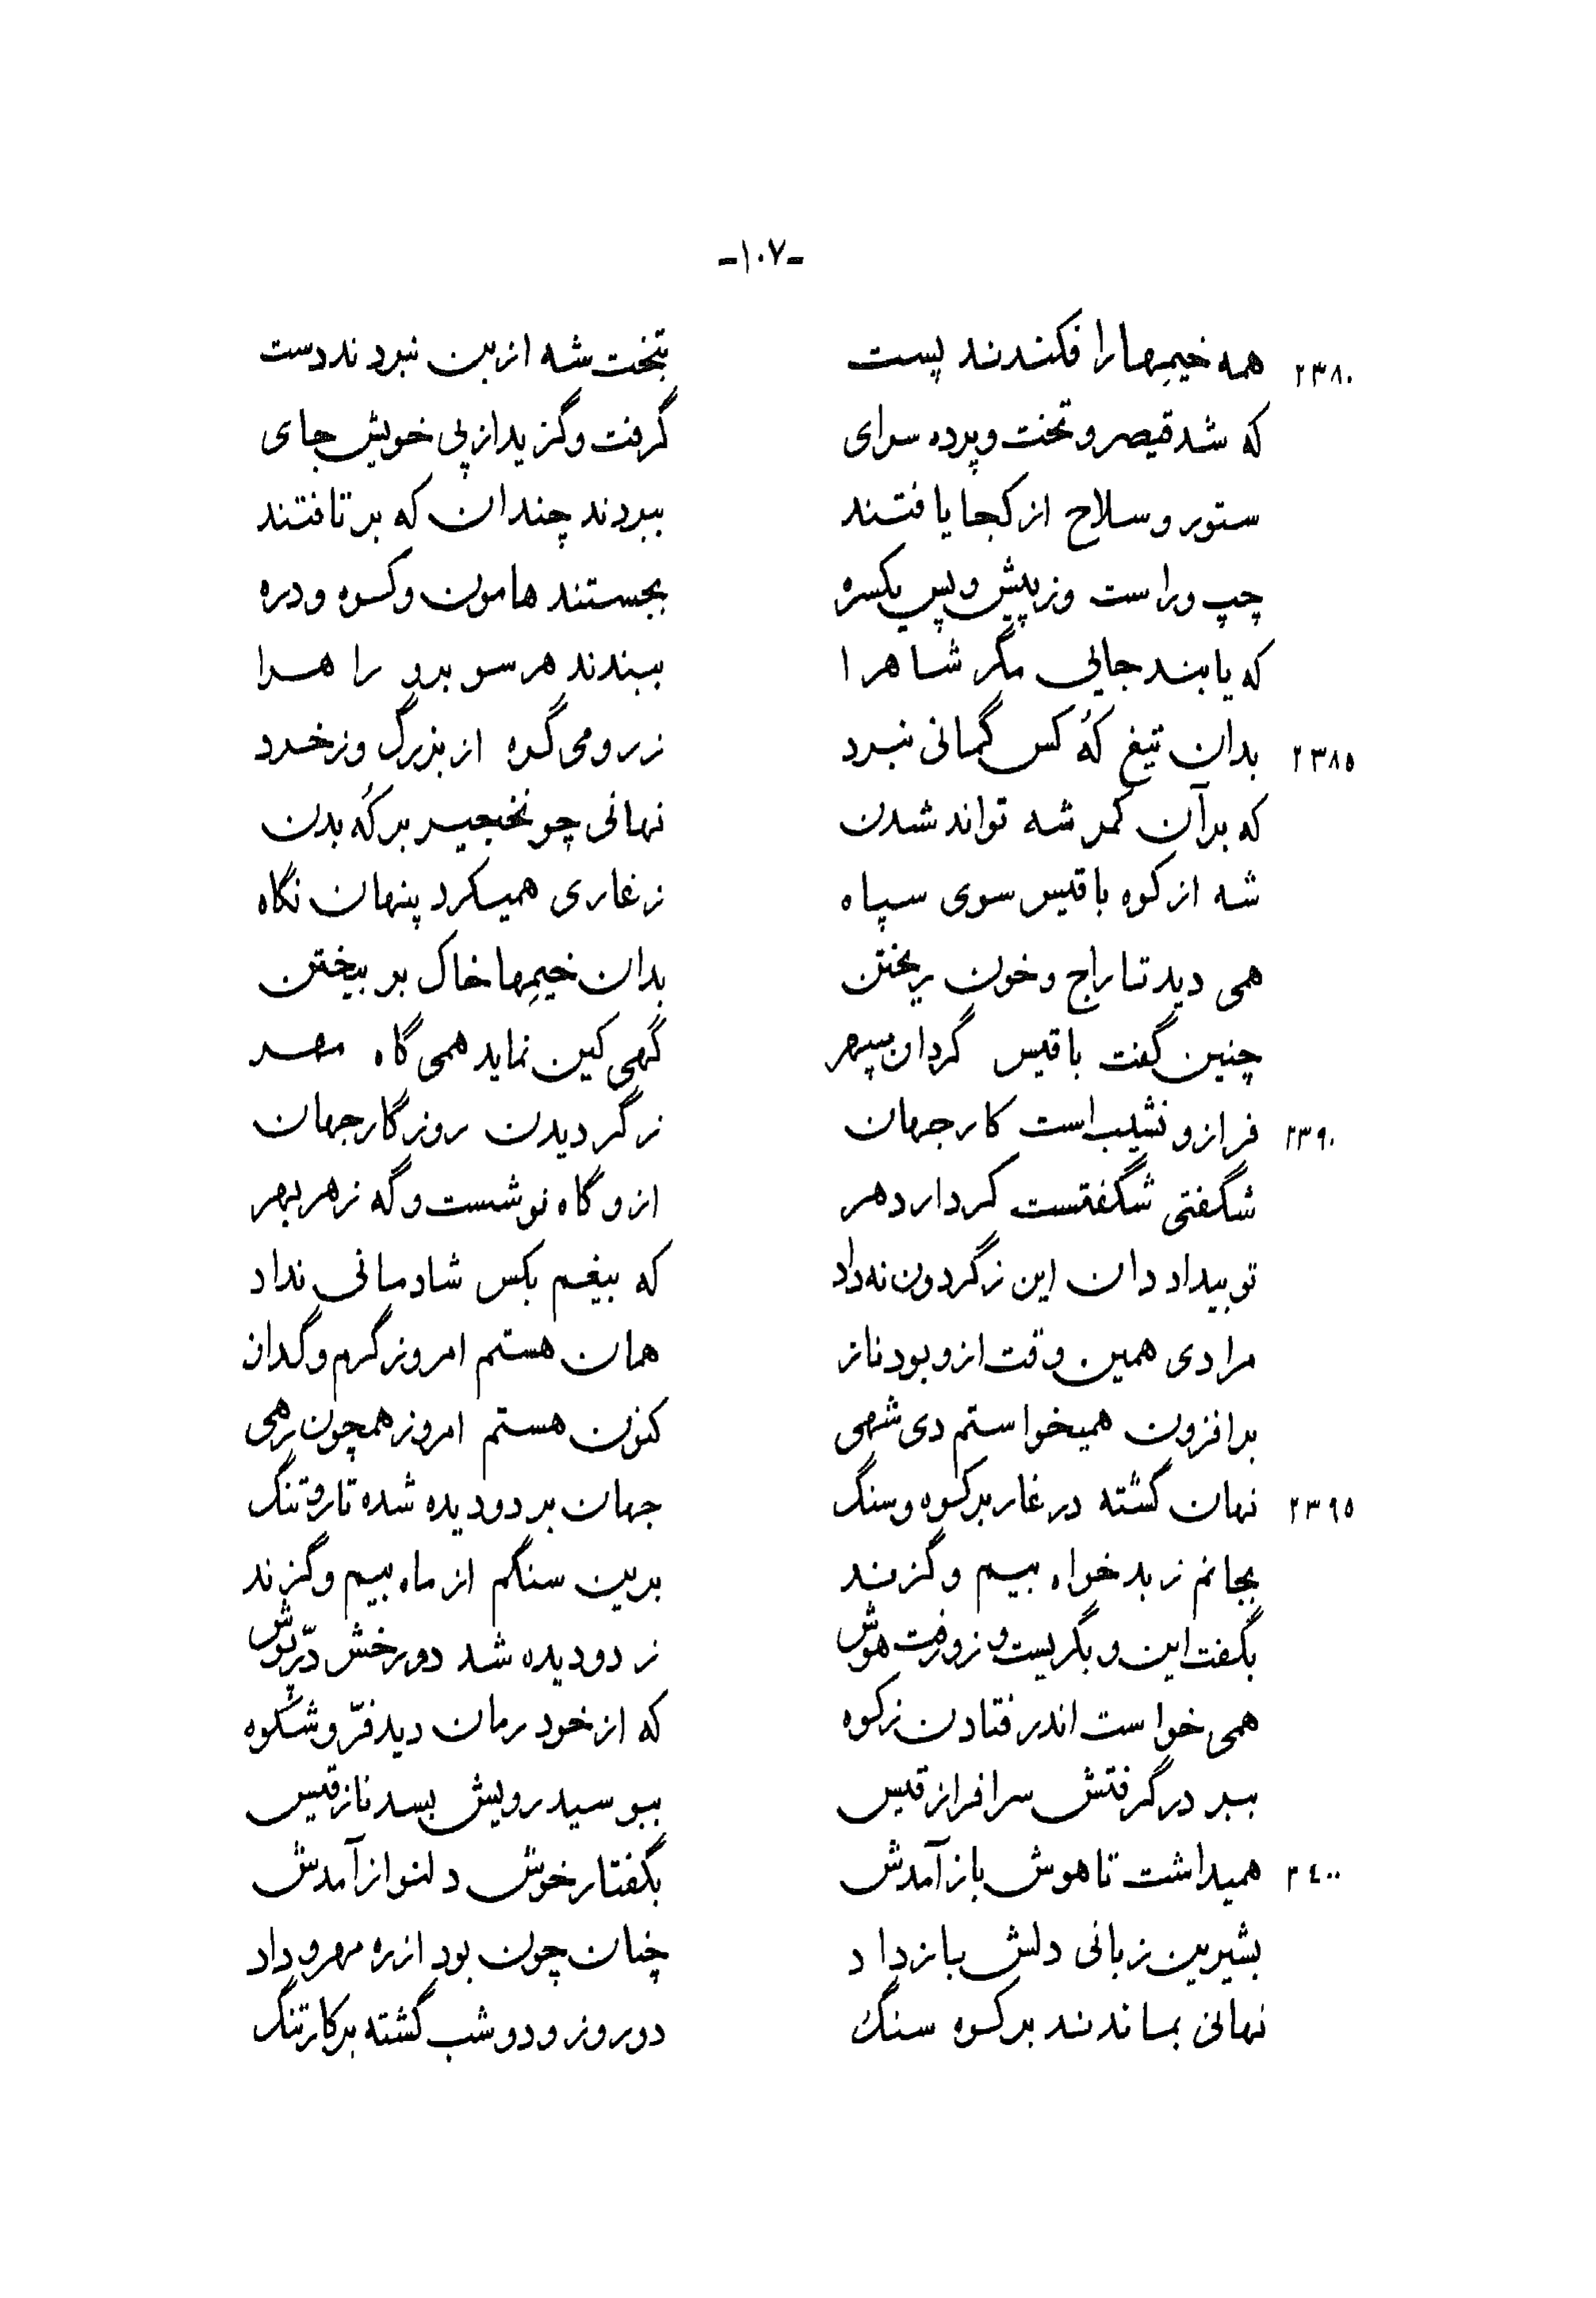 -۱۰۷-
۲۳۸۰ همه خیمها را فکندند پست بتخت شه از بن نبردند دست
که شد قیصر و تخت و پرده سرای گرفت و گزید از پی خویش جای
ستور و سلاح از کجا یافتند ببردند چندان که بر تافتند
چپ و راست وز پیش و پس یکسره بجستند هامون و کوه و دره
که یابند جایی مگر شاه را ببندند هر سو برو راه را
۲۳۸۵ بدان تیغ که کس گمانی نبرد ز رومی گره از بزرگ وز خرد
که بر آن کمر شه تواند شدن نهانی چو نخجیر بر که بدن
شه از کوه با قیس سوی سپاه ز غاری همیکرد پنهان نگاه
همی دید تاراج و خون ریختن بدان خیمها خاک بر بیختن
چنین گفت با قیس گردان سپهر گهی کین نماید همی گاه مهر
۲۳۹۰ فراز و نشیب است کار جهان ز گردیدن روزگار جهان
شگفتی شگفتست کردار دهر ازو گاه نوشست و گه زهر بهر
تو بیداد دان این ز گردون نه داد که بیغم بکس شادمانی نداد
مرا دی همین وقت ازو بود ناز همان هستم امروز گرم و گداز
بر افزون همیخواستم دی شهی کنون هستم امروز همچون رهی
۲۳۹۵ نهان گشته در غار بر کوه و سنگ جهان بر دو دیده شده تار و تنگ
بجانم ز بدخواه بیم و گزند برین سنگم از ماه بیم و گزند
بگفت این و بگریست و زو رفت هوش ز دو دیده شد دو رخش درّ پوش
همی خواست اندر فتادن ز کوه که از خود رمان دید فرّ و شکوه
ببر در گرفتش سرافراز قیس ببوسید رویش بسد ناز قیس
۲۴۰۰ همیداشت تا هوش باز آمدش بگفتار خوش دلنواز آمدش
بشیرین زبانی دلش باز داد چنان چون بود از ره مهر و داد
نهانی بماندند بر کوه سنگ دو روز و دو شب گشته بر کار تنگ